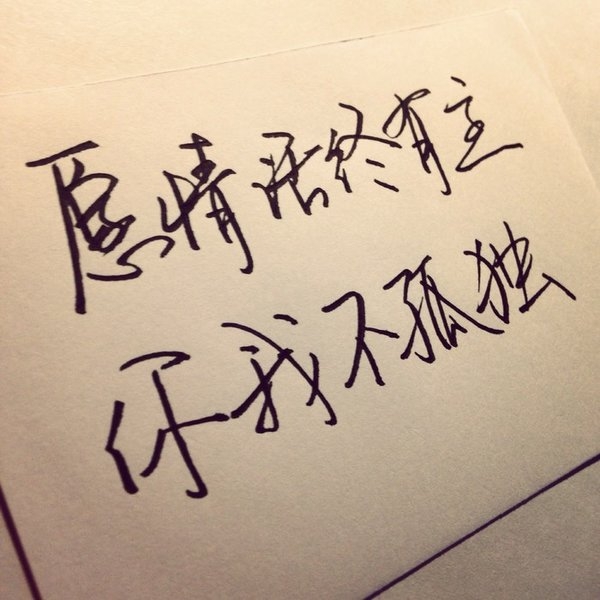 愿情话终有主
你我不孤独